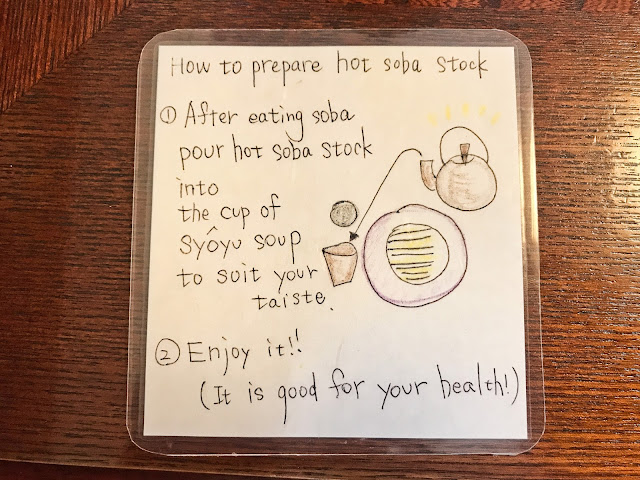 How to prepare hot soba stock
① After eating soba
pour hot soba stock
into
the cup of
syôyu soup
to soit your
taiste.
② Enjoy it!!
(It is good for your health!)